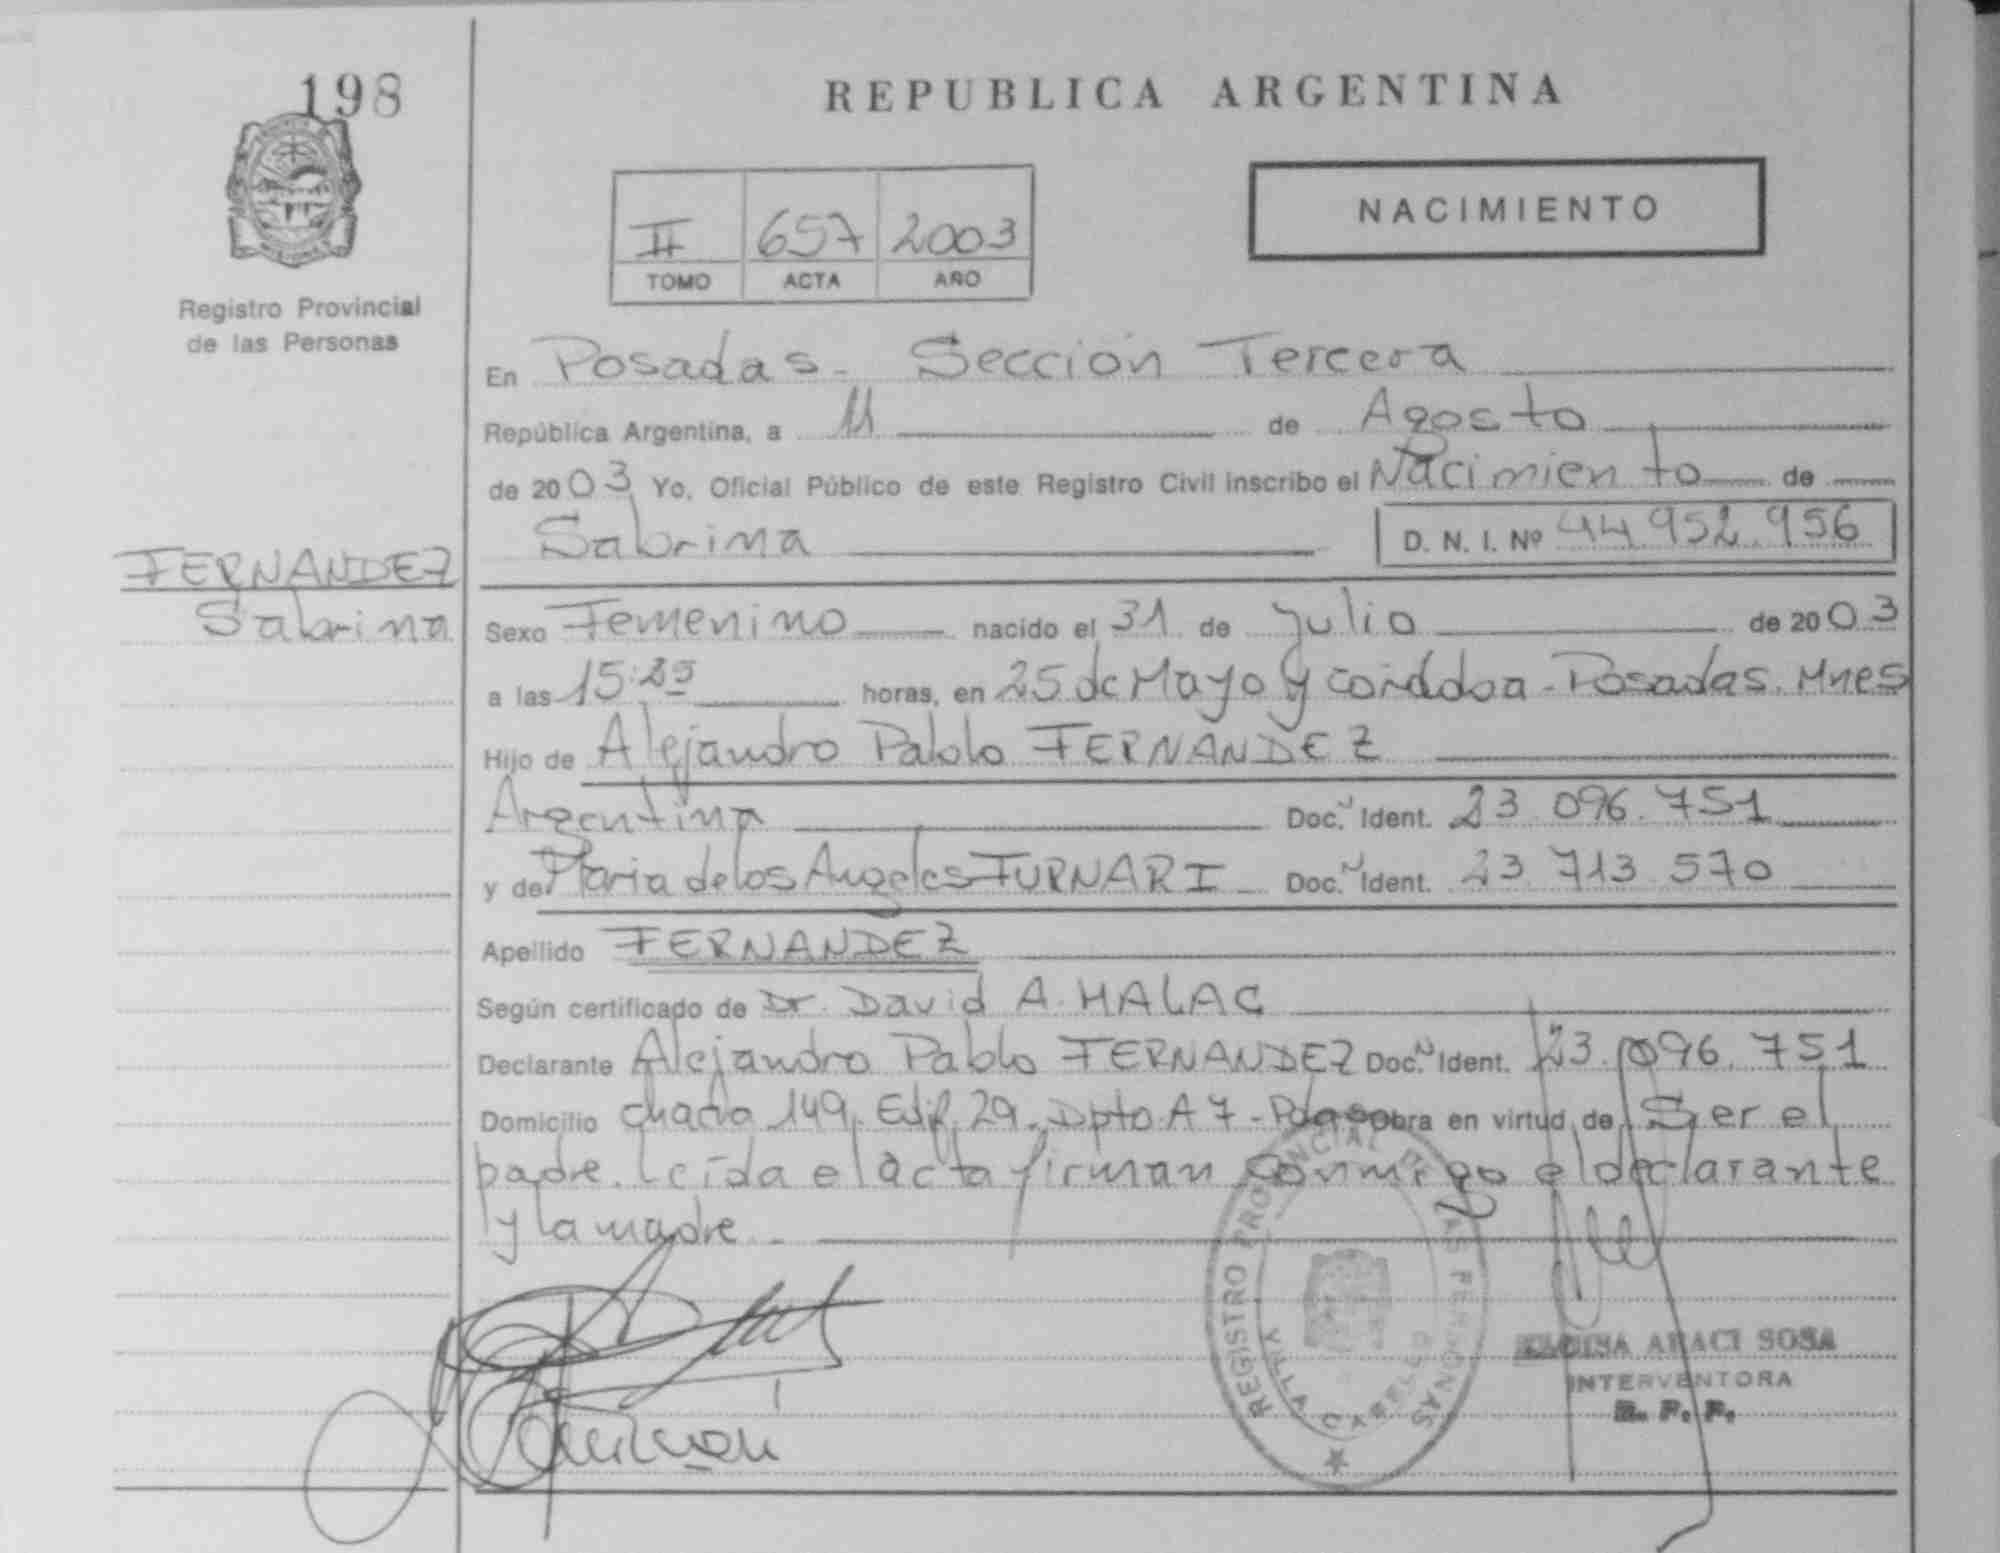 198
REPUBLICA ARGENTINA
NACIMIENTO
II 657 2003
TOMO ACTA AÑO
Registro Provincial
de las Personas
En Posadas - Sección Tercera
República Argentina, a 11 de Agosto
de 2003 Yo, Oficial Público de este Registro Civil inscribo el Nacimiento de
Sabrina D. N. I. Nº 44.952.956
FERNANDEZ
Sabrina
Sexo Femenino nacido el 31 de Julio de 2003
a las 15:25 horas, en 25 de Mayo y Cordoba - Posadas. Mnes
Hijo de Alejandro Pablo FERNANDEZ
Argentina Doc. Ident. 23.096.751
y de Maria de los Angeles FURNARI Doc. Ident. 23.713.570
Apellido FERNANDEZ
Según certificado de Dr. David A. HALAC
Declarante Alejandro Pablo FERNANDEZ Doc. Ident. 23.096.751
Domicilio chacra 149. Edif. 29. Dpto A 7 - Pdas obra en virtud de Ser el
padre. Leída el acta firman conmigo el declarante
y la madre
REGISTRO PROVINCIAL DE LAS PERSONAS
VILLA CABELLO
ARACI SOSA
INTERVENTORA
R. P. P.